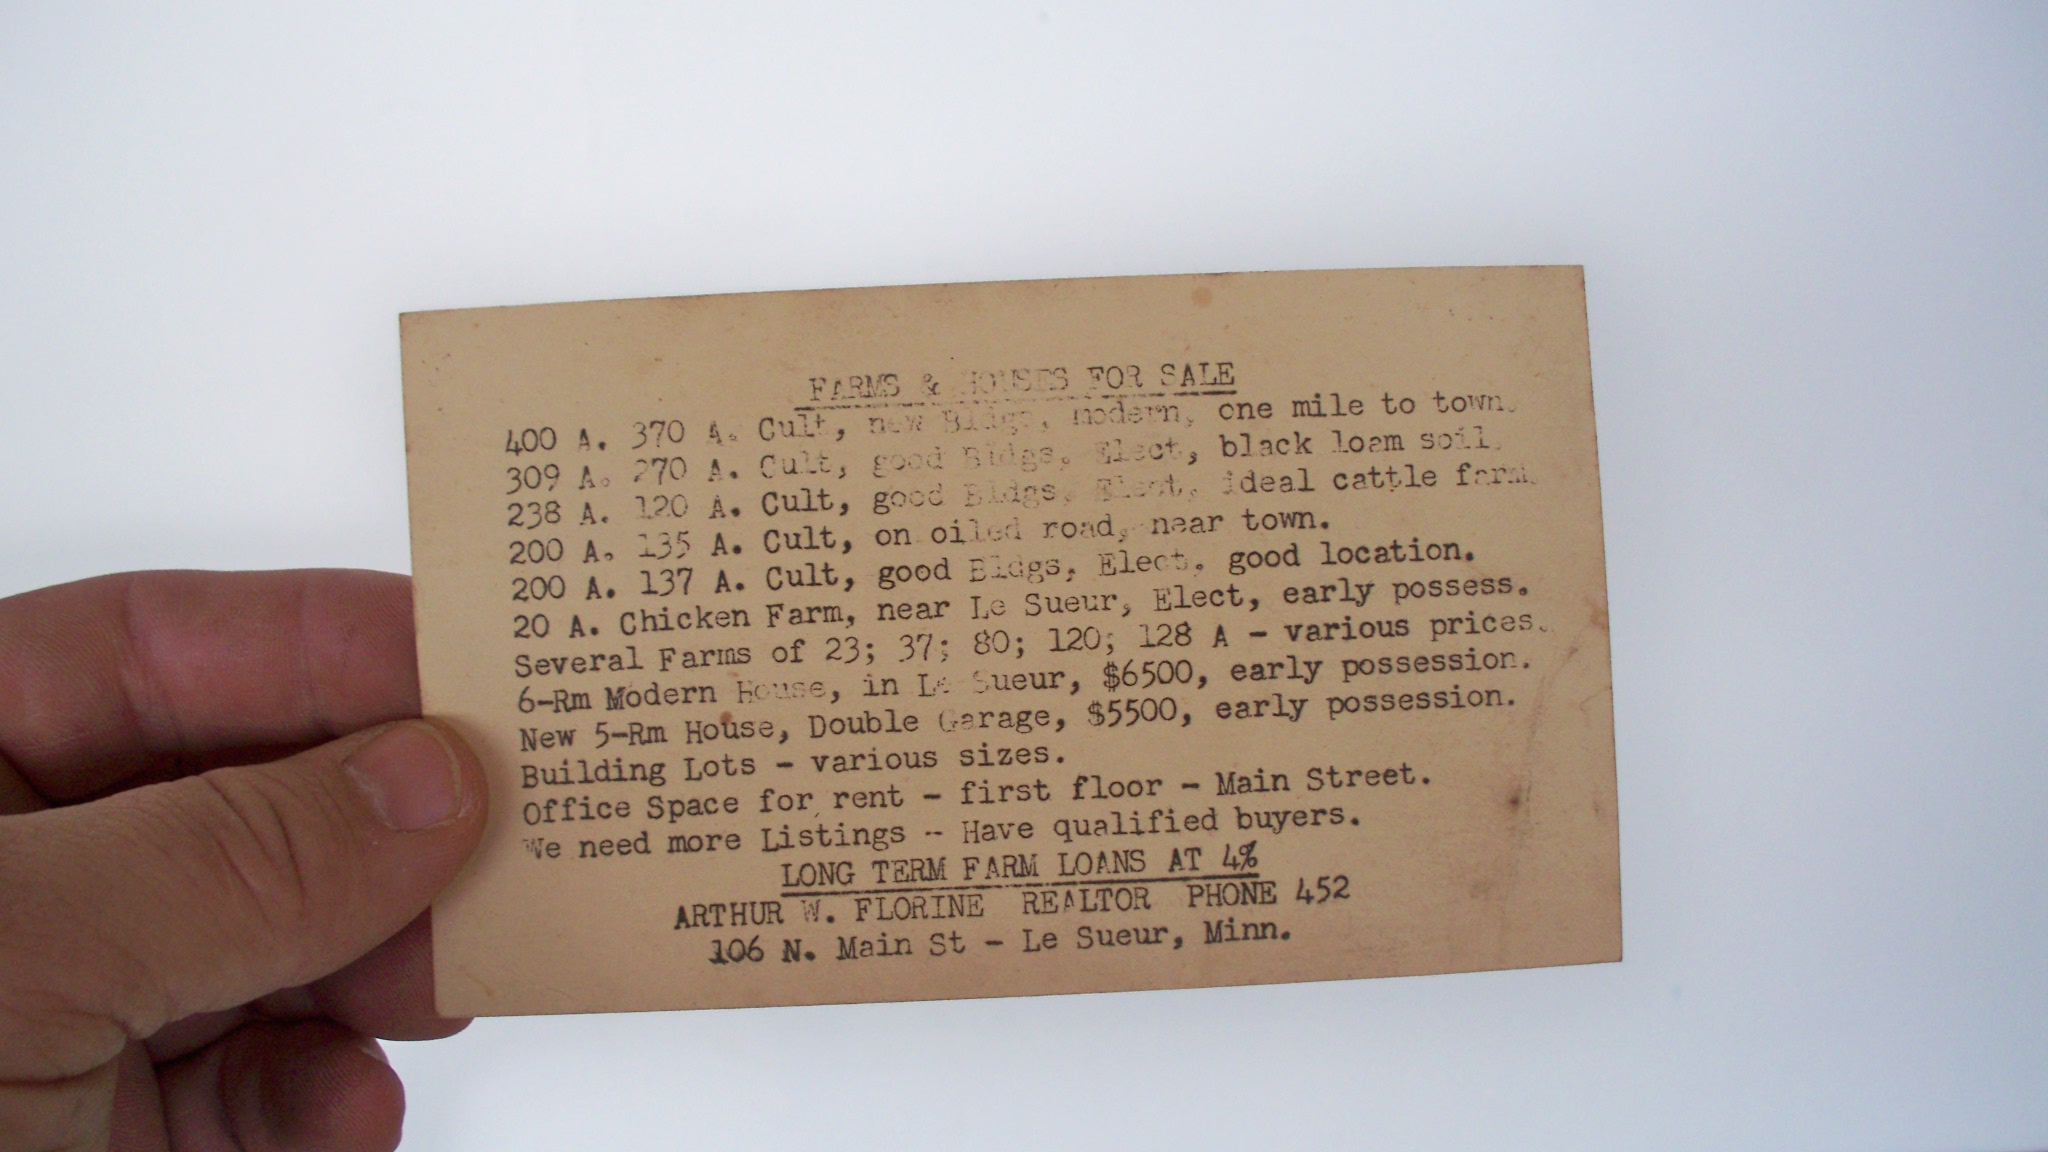 FARMS & HOUSES FOR SALE
400 A. 370 A. Cult, new Bldgs, modern, one mile to town.
309 A. 270 A. Cult, good Bldgs, Elect, black loam soil.
238 A. 120 A. Cult, good Bldgs, Elect, ideal cattle farm.
200 A. 135 A. Cult, on oiled road, near town.
200 A. 137 A. Cult, good Bldgs, Elect, good location.
20 A. Chicken Farm, near Le Sueur, Elect, early possess.
Several Farms of 23; 37; 80; 120; 128 A - various prices.
6-Rm Modern House, in Le Sueur, $6500, early possession.
New 5-Rm House, Double Garage, $5500, early possession.
Building Lots - various sizes.
Office Space for rent - first floor - Main Street.
We need more Listings -- Have qualified buyers.
LONG TERM FARM LOANS AT 4%
ARTHUR W. FLORINE REALTOR PHONE 452
106 N. Main St - Le Sueur, Minn.